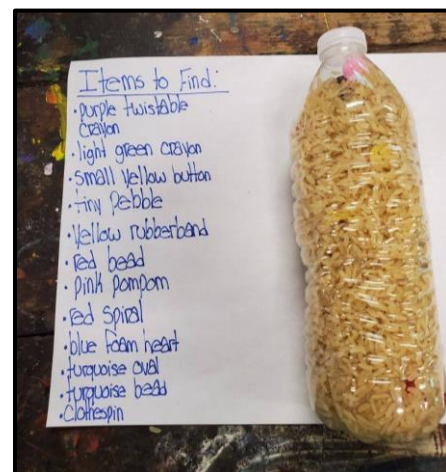 Items to Find:
• purple twistable
crayon
• light green crayon
• small yellow button
• tiny pebble
• yellow rubberband
• red bead
• pink pompom
• red spiral
• blue foam heart
• turquoise oval
• turquoise bead
• clothespin